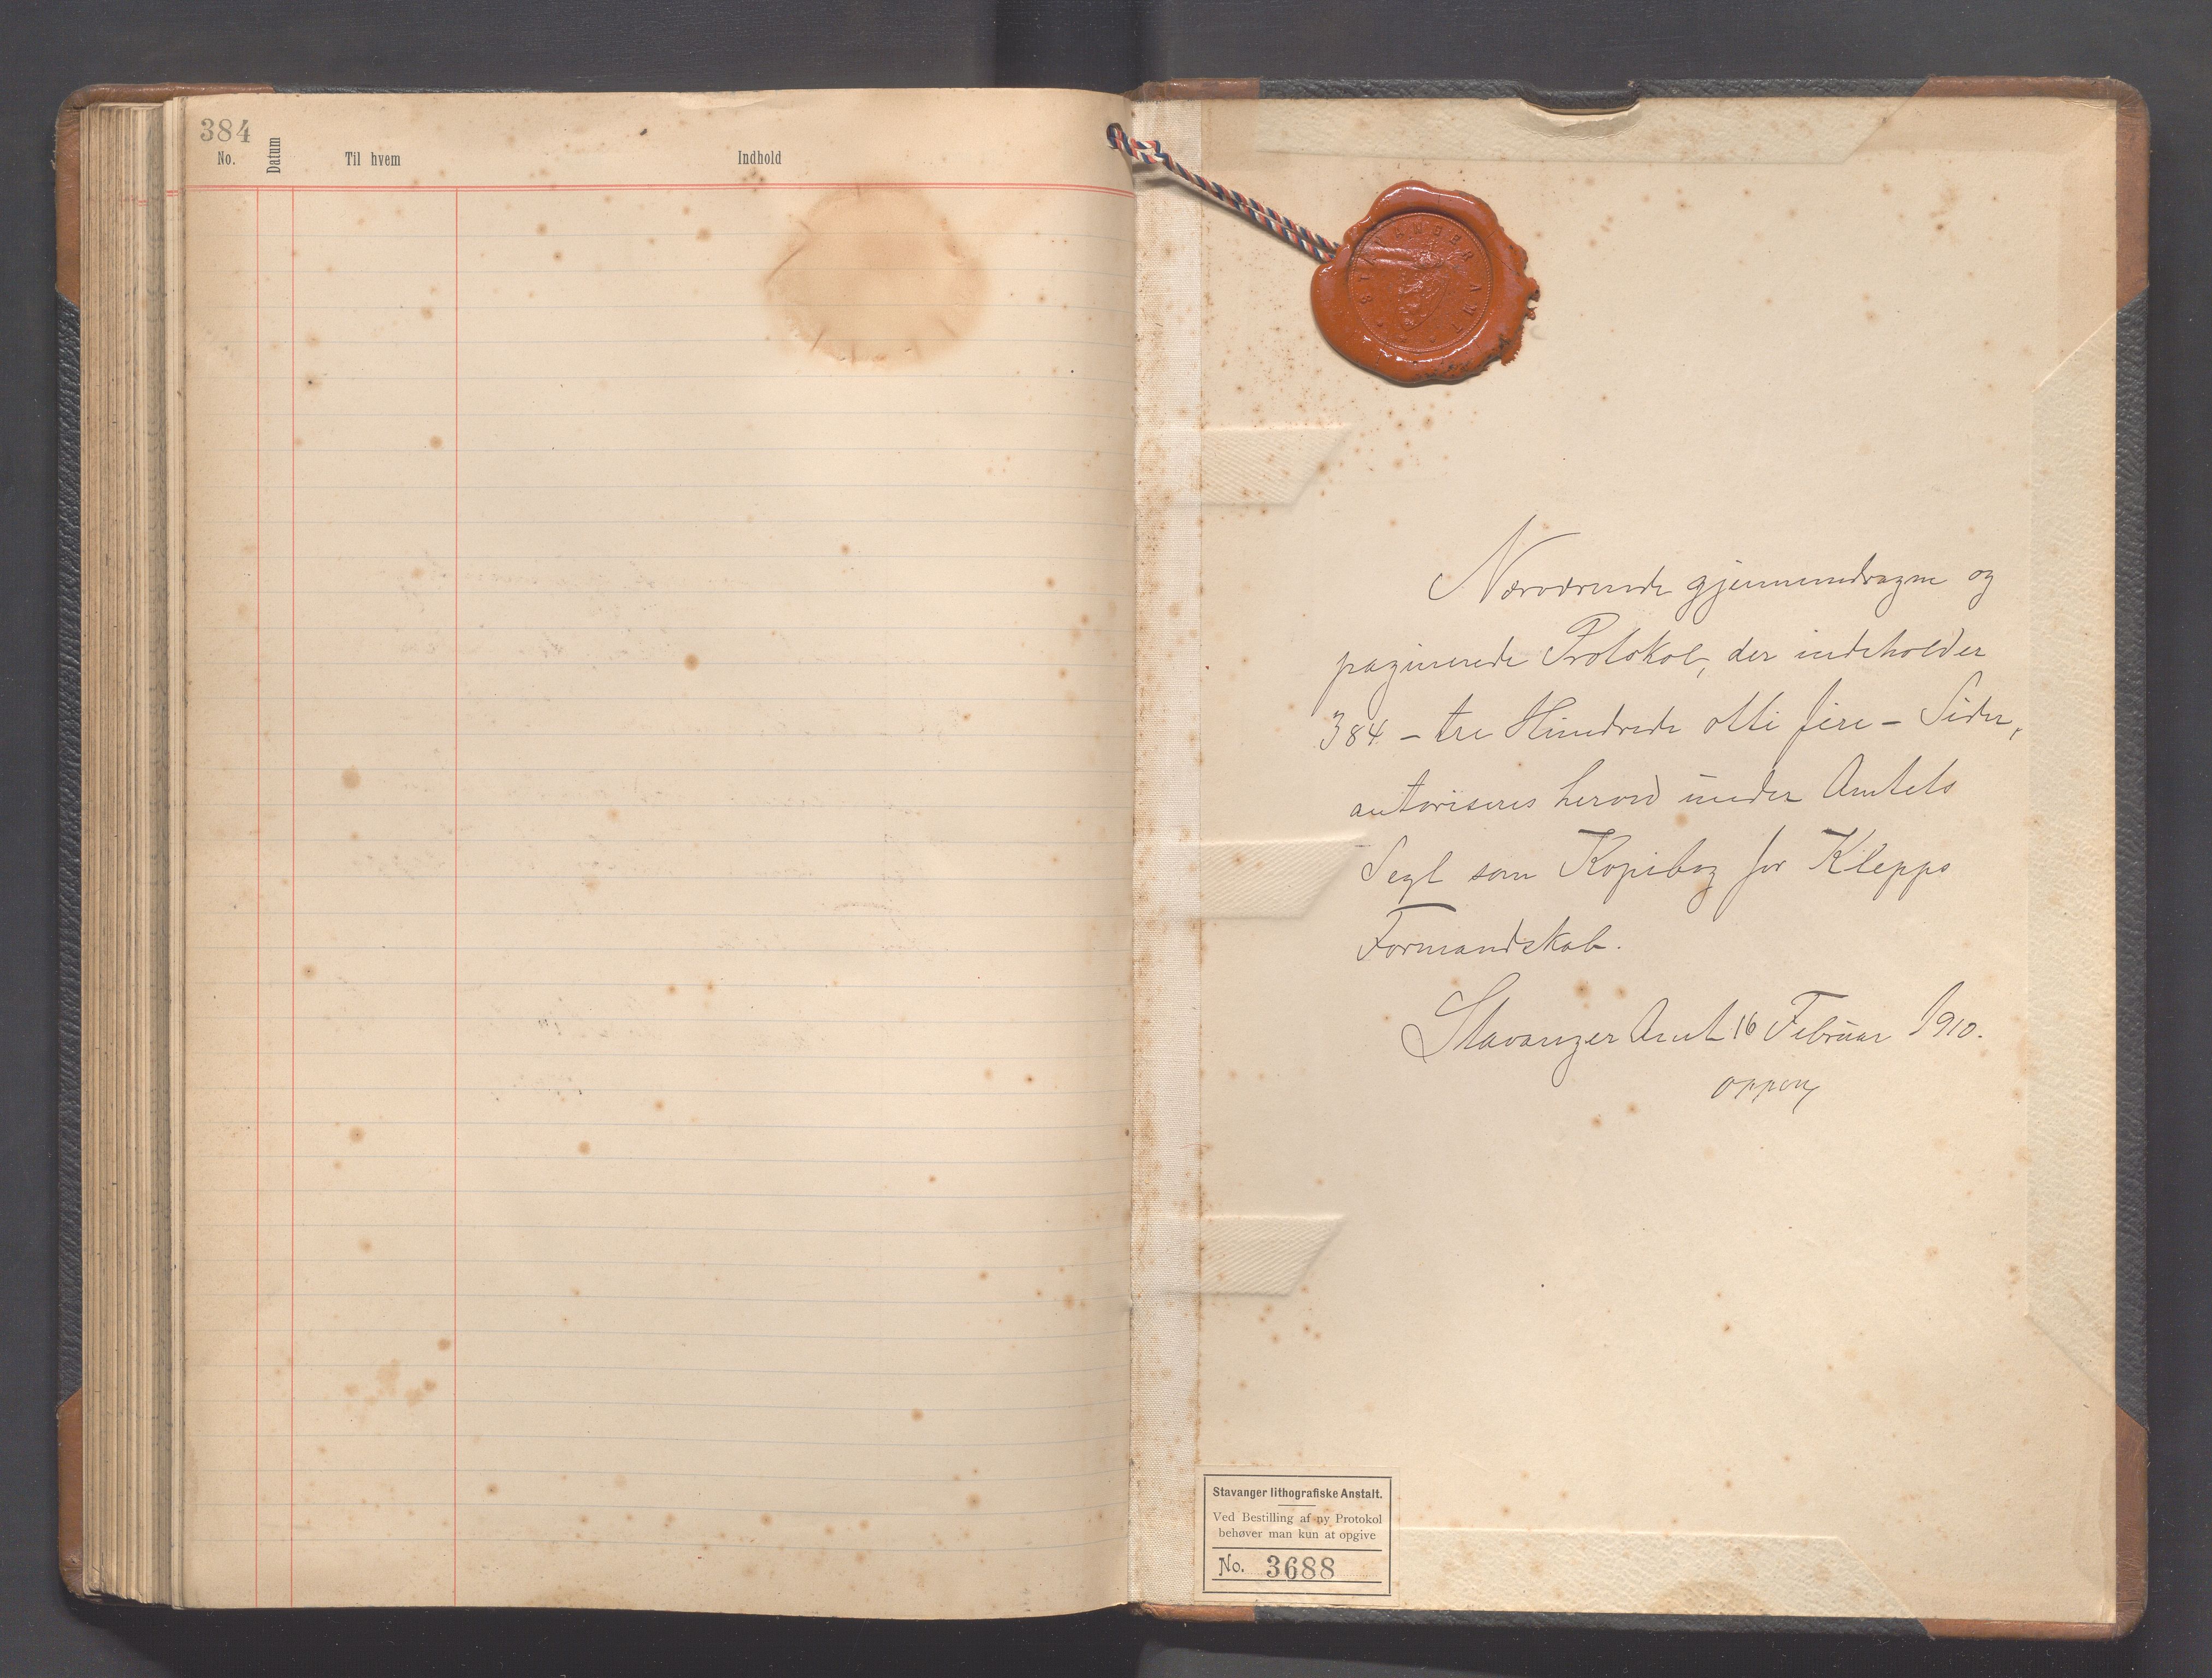 384
No.
Datum
Til hvem
Indhold
STAVANGER AMT
Nærværende gjennemdragne og
paginerede Protokol, der indeholder
384 – tre Hundrede otti fire – Sider,
autoriseres herved under Amtets
Segl som Kopibog for Klepps
Formandskab.
Stavanger Amt 16 Februar 1910.
Oppen
Stavanger lithografiske Anstalt.
Ved Bestilling af ny Protokol
behøver man kun at opgive
No. 3688